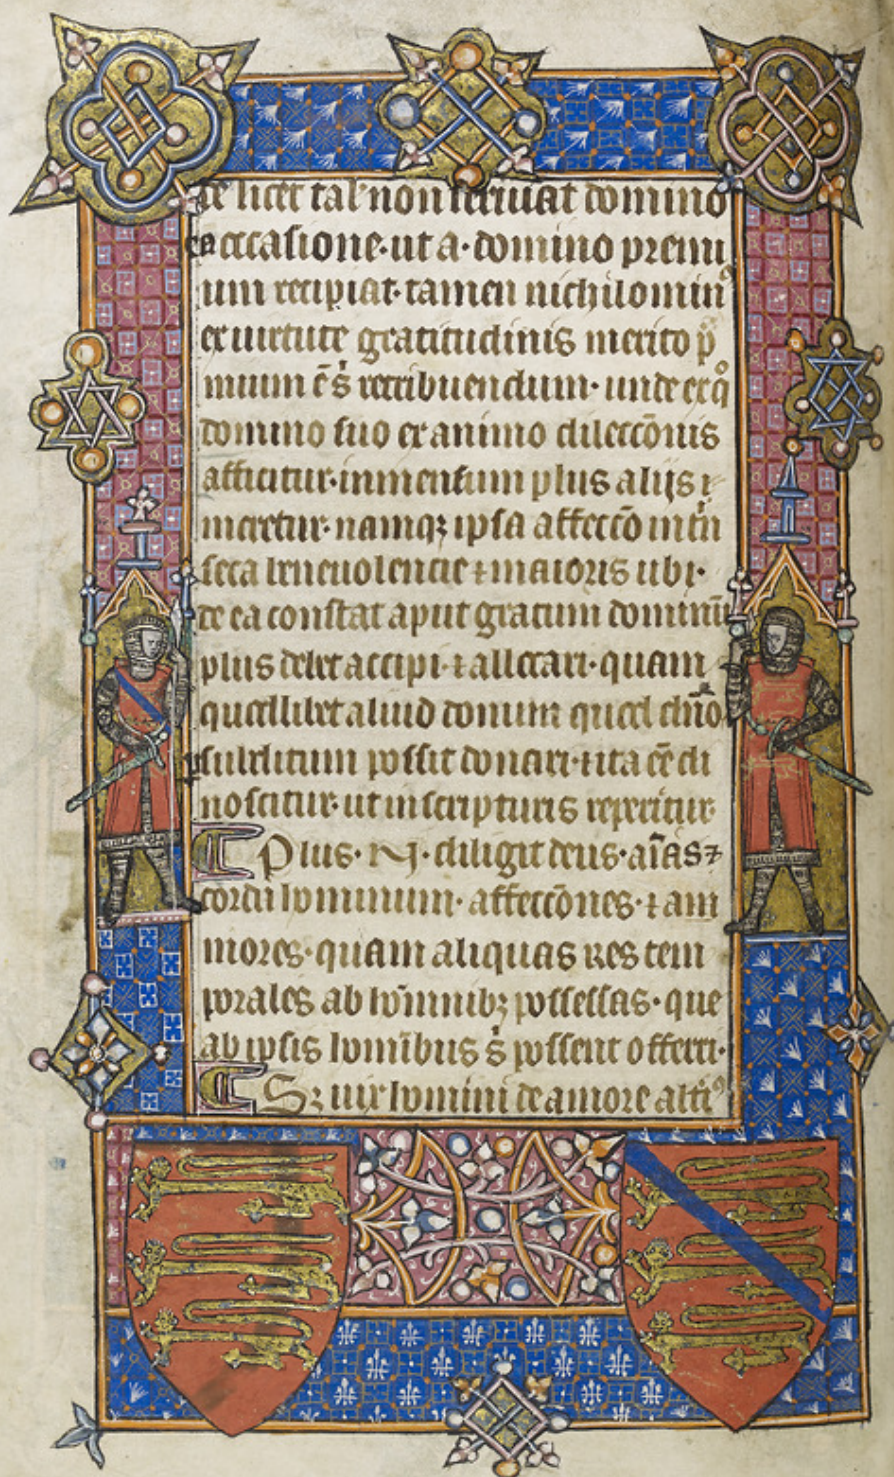 te licet tał non seruiat domino
ea occasione· ut a· domino premi
um recipiat· tamen nichilominꝰ
ex uirtute gratitudinis merito p̄
mium ē s̄ retribuendum· unde ex qͦ
domino suo ex animo dileccōnis
afficitur· inmensum plus alijs
meretur· namqꝫ ipsa affeccō intͥn
seca beneuolencie ⁊ maioris ubi·
de ea constat aput gratum dominū
plus debet accipi· ⁊ allectari· quam
quodlibet aliud donum quod
subditum possit donari· ⁊ ita
noscitur· ut in scripturis reperitur·
Plus· N· diligit deus· aīas ⁊
cordū hominum· affeccōnes· ⁊ am
mores· quam aliquas res tem
porales ab hōminibꝫ possessas· que
ab ipsis hominibus s̄ possent offerri·
Sꝫ uix homini de amore altͥiꝰ